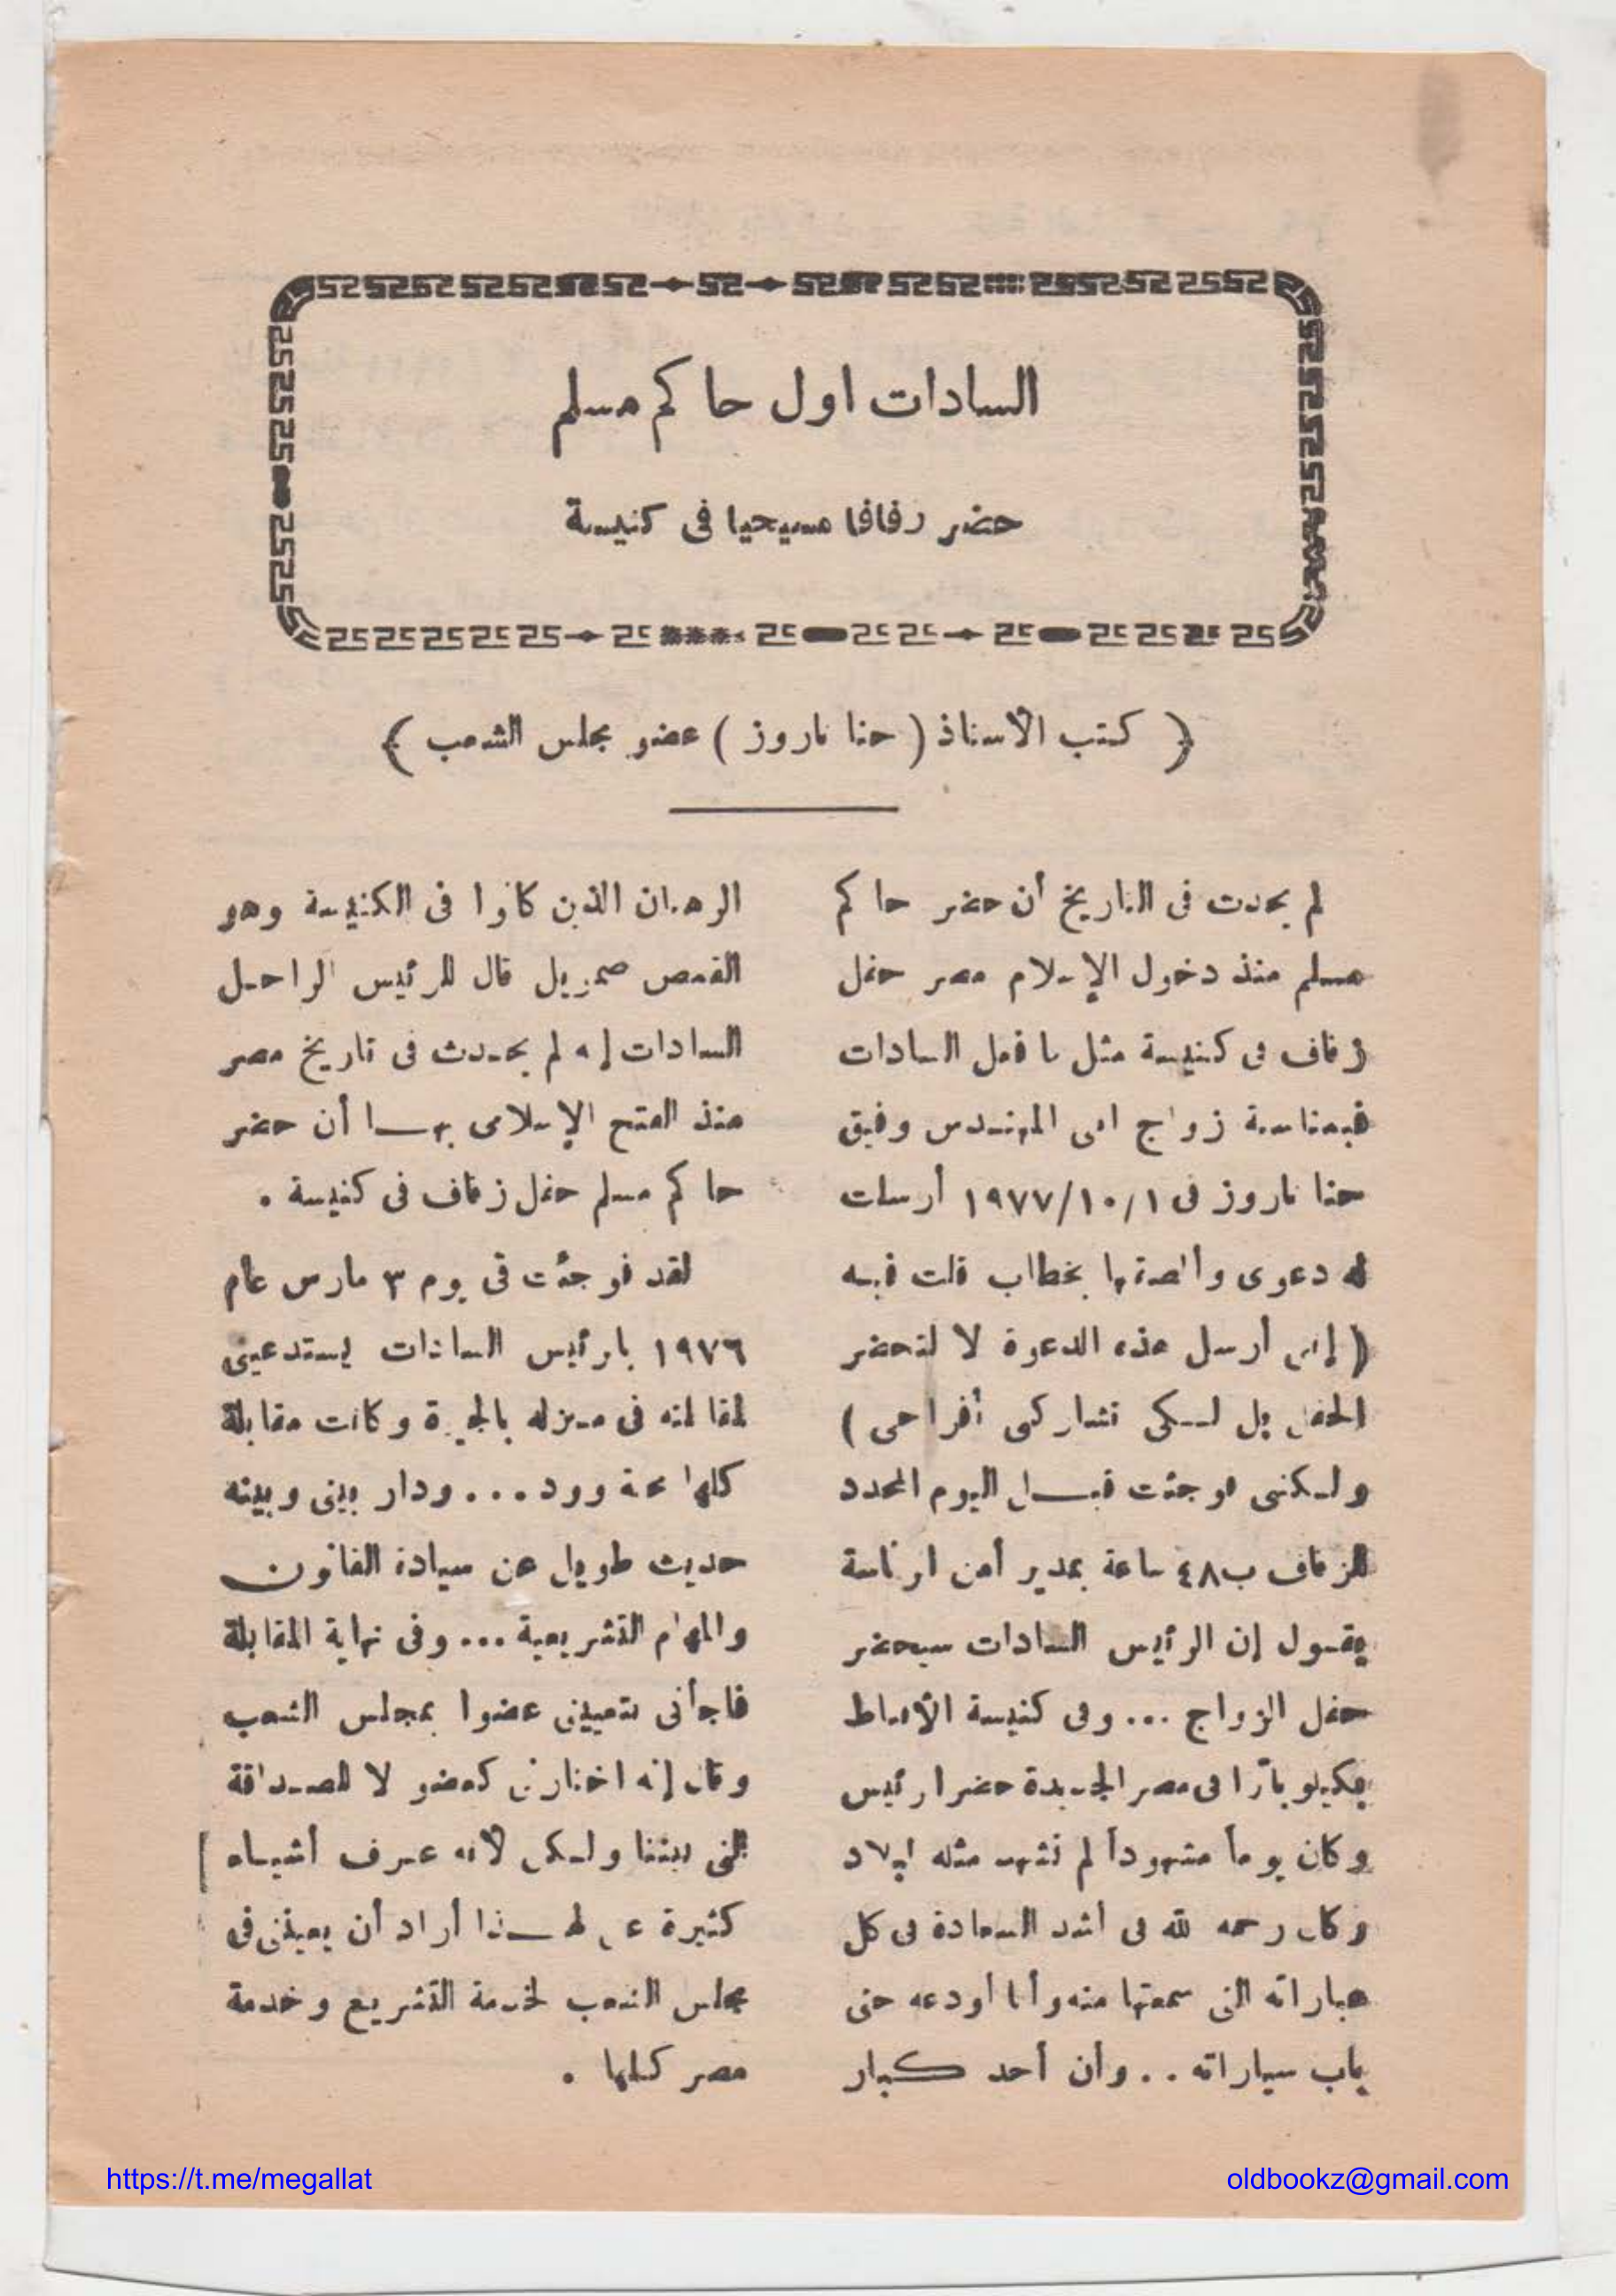 السادات اول حاكم مسلم
حضر زفافا مسيحيا فى كنيسة
( كتب الأستاذ ( حنا ناروز ) عضو مجلس الشعب )
لم يحدث فى التاريخ أن حضر حاكم
مسلم منذ دخول الإسلام مصر حفل
زفاف فى كنيسة مثل ما فعل السادات
فبمناسبة زواج ابنى المهندس وفيق
حنا ناروز فى ١٩٧٧/١٠/١ أرسلت
له دعوى وألصقتها بخطاب قلت فيه
( إننى أرسل هذه الدعوة لا لتحضر
الحفل بل لكى تشاركنى أفراحى )
ولكننى فوجئت قبل اليوم المحدد
للزفاف ب٤٨ ساعة بمدير أمن الرئاسة
يقول إن الرئيس السادات سيحضر
حفل الزواج ... وفى كنيسة الأقباط
بكيلوباترا فى مصر الجديدة حضر الرئيس
وكان يوماً مشهوداً لم تشهد مثله البلاد
وكان رحمه الله فى أشد السعادة فى كل
عباراته التى سمعتها منه وأنا أودعه حتى
باب سياراته .. وأن أحد كبار
الرهبان الذين كانوا فى الكنيسة وهو
القمص صموئيل قال للرئيس الراحل
السادات إنه لم يحدث فى تاريخ مصر
منذ الفتح الإسلامى بها أن حضر
حاكم مسلم حفل زفاف فى كنيسة .
لقد فوجئت فى يوم ٣ مارس عام
١٩٧٦ بالرئيس السادات يستدعينى
لمقابلته فى منزله بالجيزة وكانت مقابلة
كلها محبة وود ... ودار بينى وبينه
حديث طويل عن سيادة القانون
والمهام التشريعية ... وفى نهاية المقابلة
فاجأنى بتعيينى عضوا بمجلس الشعب
وقال إنه اختارنى كعضو لا للصداقة
التى بيننا ولكن لأنه عرف أشياء
كثيرة عنى لهذا أراد أن يعيننى فى
مجلس الشعب لخدمة التشريع وخدمة
مصر كلها .
https://t.me/megallat
oldbookz@gmail.com